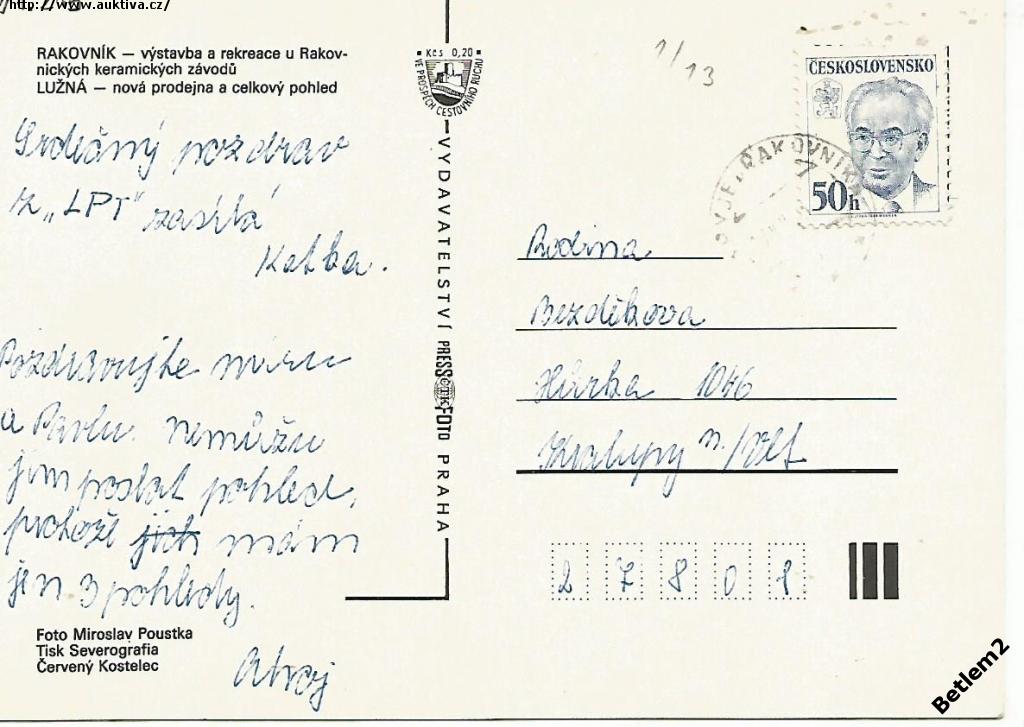 http://www.auktiva.cz/
RAKOVNÍK — výstavba a rekreace u Rakov-
nických keramických závodů
LUŽNÁ — nová prodejna a celkový pohled
Srdečný pozdrav
z „LPT" zasílá
Katka.
Pozdravujte miru
a Pavlu. nemůžu
jim poslat pohled,
protože jich mám
jen 3 pohledy.
Ahoj
Foto Miroslav Poustka
Tisk Severografia
Červený Kostelec
Kčs 0,20
VE PROSPĚCH CESTOVNÍHO RUCHU
VYDAVATELSTVÍ PRESSFOTO PRAHA
ČTK
1/13
ČESKOSLOVENSKO
50h
RAKOVNÍK
Rodina
Bezděkova
Hůrka 1046
Kralupy n/Vlt
27801
Betlem2